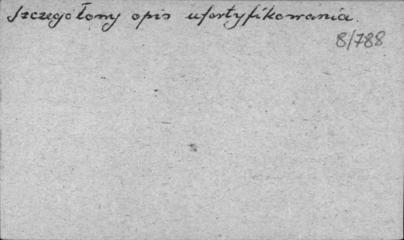 Szczegółowy opis ufortyfikowania.
8/788